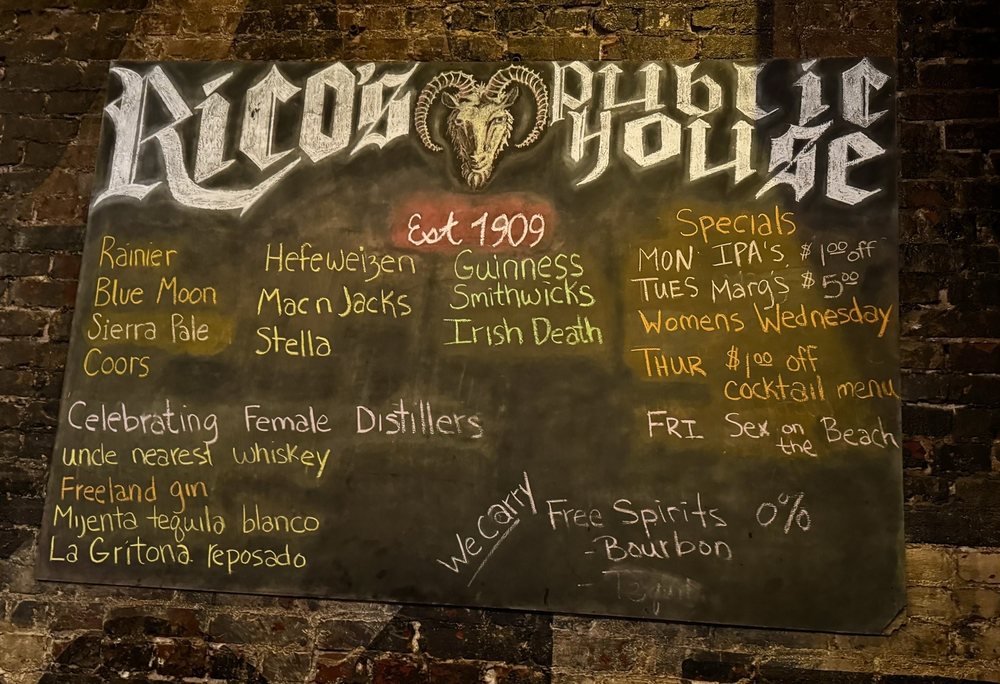 Rico's Public
House
Est 1909
Rainier
Blue Moon
Sierra Pale
Coors
Hefeweizen
Mac n Jacks
Stella
Guinness
Smithwicks
Irish Death
Specials
MON IPA'S $1.00 off
TUES Marg's $5.00
Womens Wednesday
THUR $1.00 off
cocktail menu
FRI Sex on the Beach
Celebrating Female Distillers
uncle nearest whiskey
Freeland gin
Mijenta tequila blanco
La Gritona reposado
We Carry
Free Spirits 0%
-Bourbon